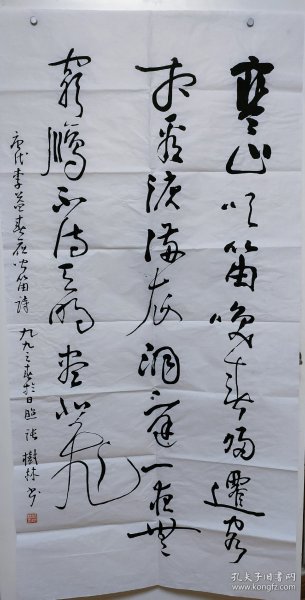 寒山吹笛唤春歸遷客
相看淚滿衣洞庭一夜無
窮鴈不待天明盡北飛
唐代李益春夜聞笛詩 九九三春於日照 張樹林书
孔夫子旧书网
www.kongfz.com